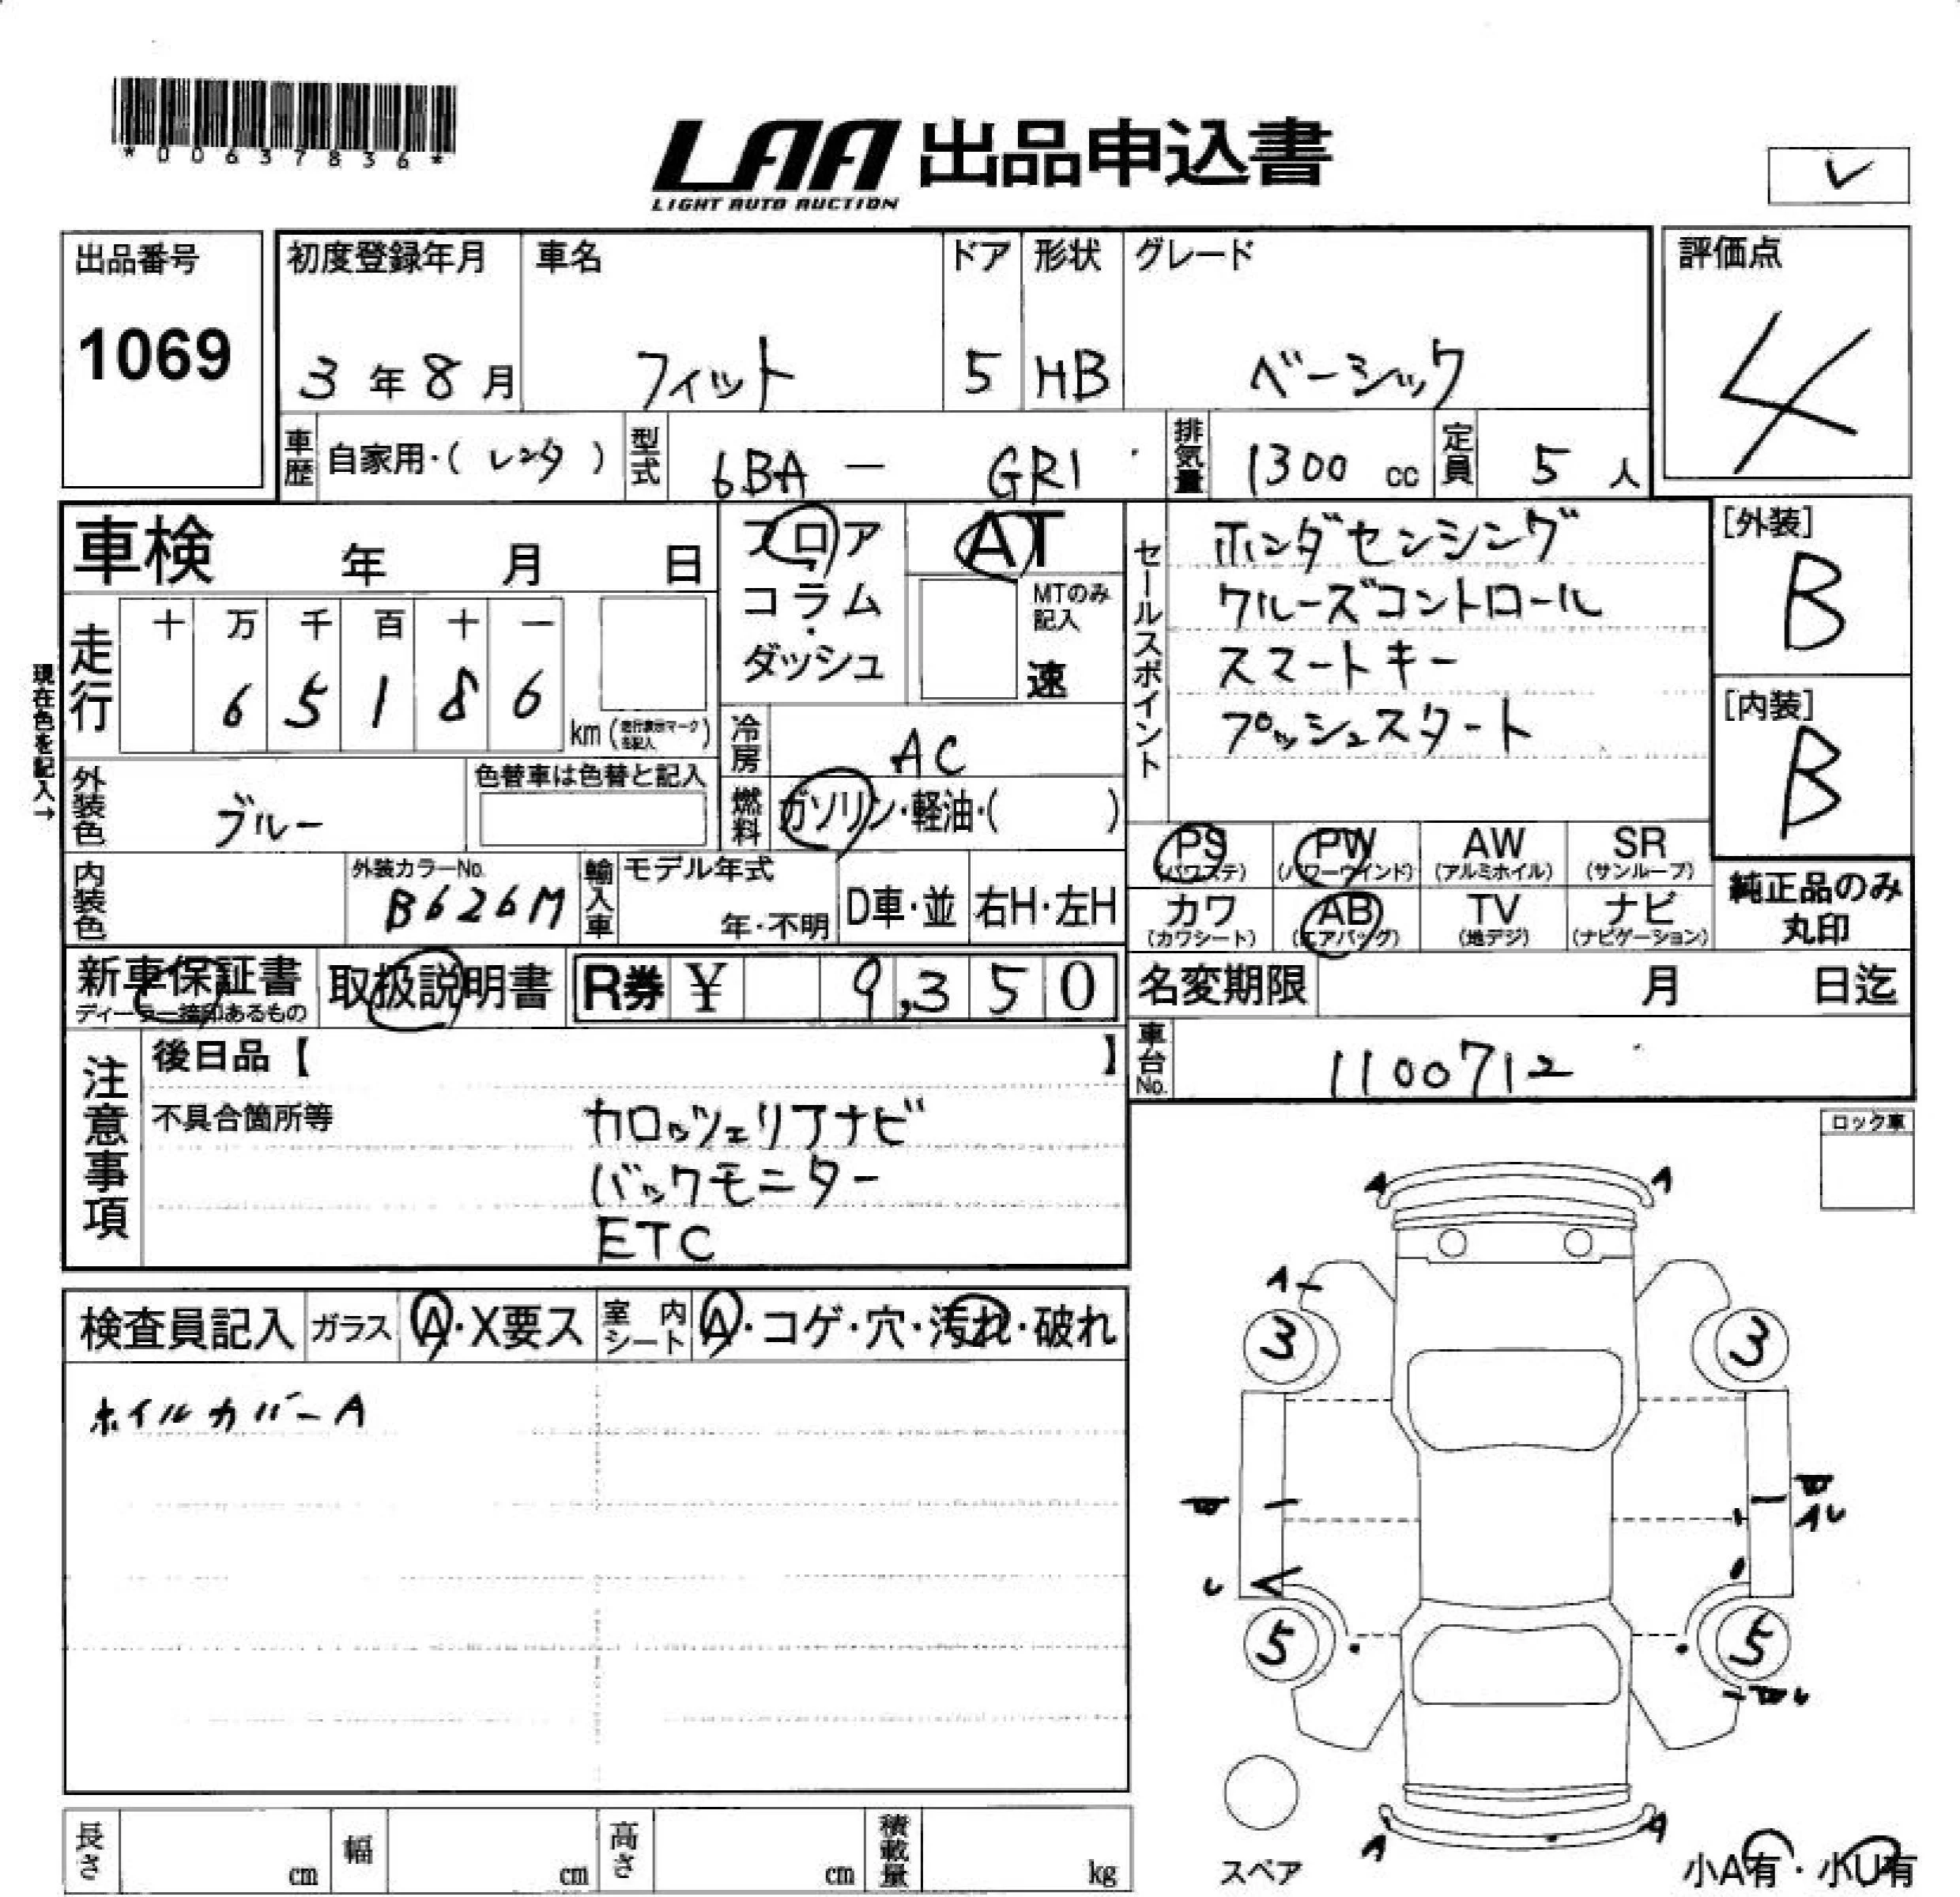 *00637836*
LAA 出品申込書
LIGHT AUTO AUCTION
レ
出品番号
1069
初度登録年月
3年8月
車名
フィット
ドア
5
形状
HB
グレード
ベーシック
評価点
4
車歴
自家用・(レンタ)
型式
6BA - GR1
排気量
1300 cc
定員
5人
車検 年 月 日
フロア
コラム・
ダッシュ
AT
MTのみ記入
速
セールスポイント
ホンダセンシング
クルーズコントロール
スマートキー
プッシュスタート
[外装]
B
[内装]
B
現在色を記入→
走行
十 万 千 百 十 一
6 5 1 8 6
km (走行表示マークを記入)
冷房
AC
燃料
ガソリン・軽油・( )
外装色
ブルー
色替車は色替と記入
内装色
外装カラーNo.
B626M
輸入車
モデル年式
年・不明
D車・並
右H・左H
PS
(パワステ)
PW
(パワーウインド)
AW
(アルミホイル)
SR
(サンルーフ)
カワ
(カワシート)
AB
(エアバッグ)
TV
(地デジ)
ナビ
(ナビゲーション)
純正品のみ
丸印
新車保証書
ディーラー捺印あるもの
取扱説明書
R券 ¥ 9,350
名変期限 月 日迄
車台No.
1100712
注意事項
後日品【 】
不具合箇所等
カロッツェリアナビ
バックモニター
ETC
ロック車
検査員記入
ガラス
A・X要ス
室内シート
A・コゲ・穴・汚れ・破れ
ホイルカバーA
A A
A
3 3
5 5
A A
スペア
小A有・小U有
長さ cm
幅 cm
高さ cm
積載量 kg